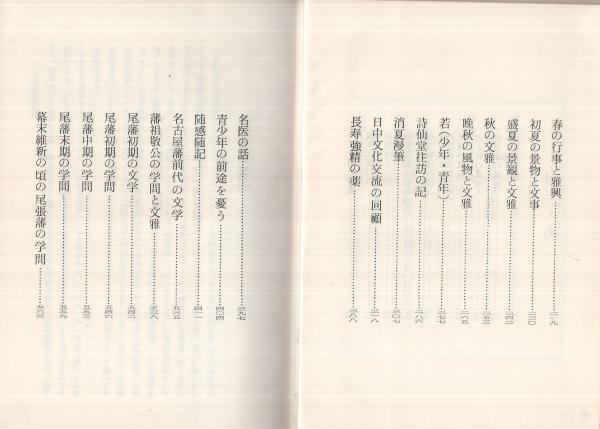 春の行事と雅興……二一九
初夏の景物と文事……二三〇
盛夏の景観と文雅……二四二
秋の文雅……二五三
晩秋の風物と文雅……二六五
若(少年・青年)……二七七
詩仙堂往訪の記……二八六
消夏漫筆……三〇七
日中文化交流の回顧……三一八
長寿強精の薬……三八八
名医の話……三九七
青少年の前途を憂う……四〇四
随感随記……四一一
名古屋藩前代の文学……五三五
藩祖敬公の学問と文雅……五三八
尾藩初期の文学……五四二
尾藩初期の学問……五四六
尾藩中期の学問……五五三
尾藩末期の学問……五五九
幕末維新の頃の尾張藩の学問……五六三